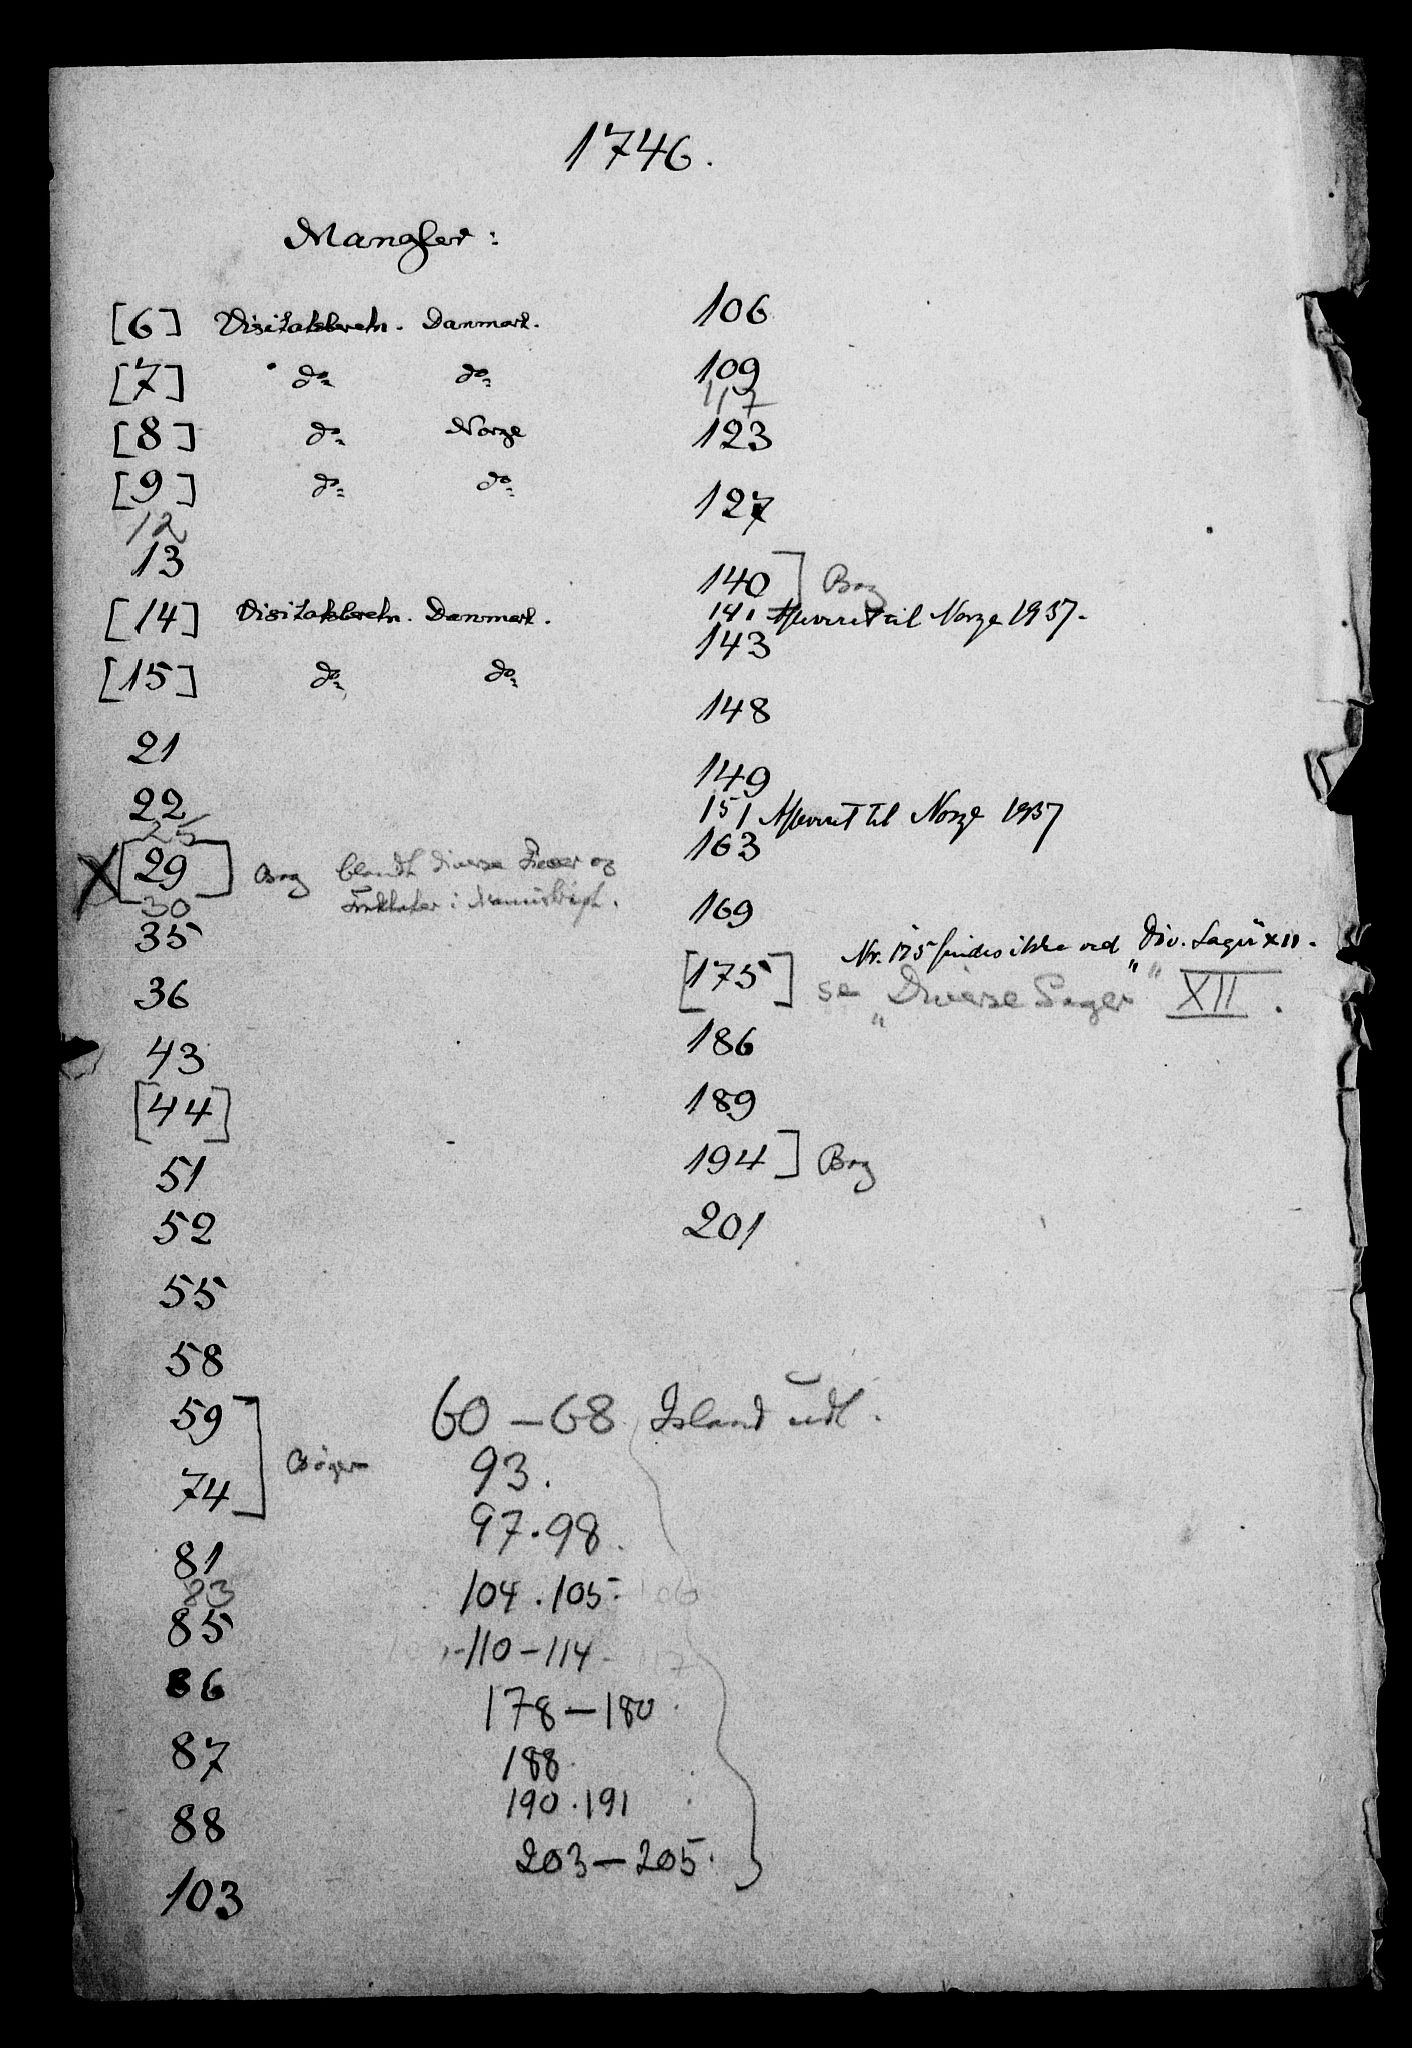 1746.
Mangler:
[6] Visitatsberetn. Danmark.
[7] do do
[8] do Norge
[9] do do
12
13
[14] Visitatsberetn. Danmark.
[15] do do
21
22
25
X [29] Bog blandt diverse og
i Manuskript.
30
35
36
43
[44]
51
52
55
58
59
74] Bøger
81
83
85
86
87
88
103
106
109
117
123
127
140] Bog
141 Afleveret til Norge 1937.
143
148
149
151 Afleveret til Norge 1937
163
169
Nr. 175 findes ikke ved "Div. Sager" XII.
[175] se "Diverse Sager" XII.
186
189
194] Bog
201
60-68 Island udl.
93.
97.98.
104.105. 106
110-114-117
178-180.
188.
190.191.
203-205.